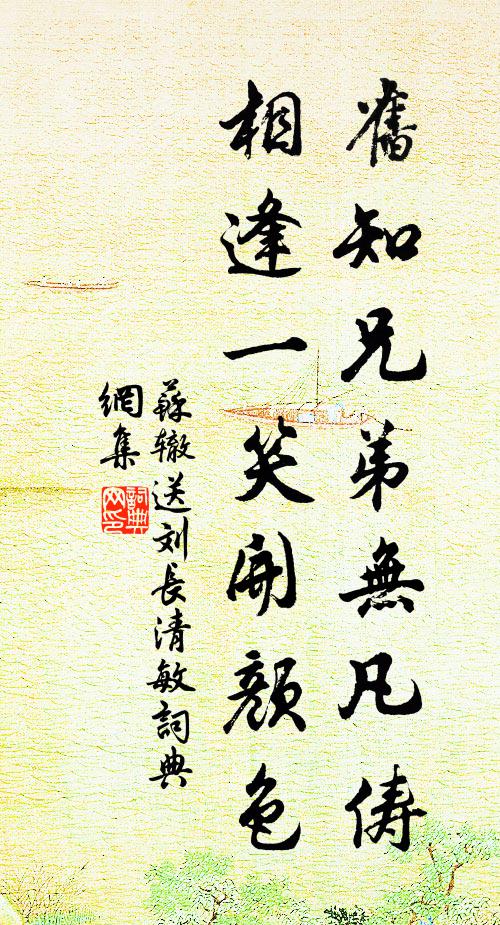 舊知兄弟無凡俦
相逢一笑開顏色
蘇辙送刘長清敏詞典
網集
詞典
网印